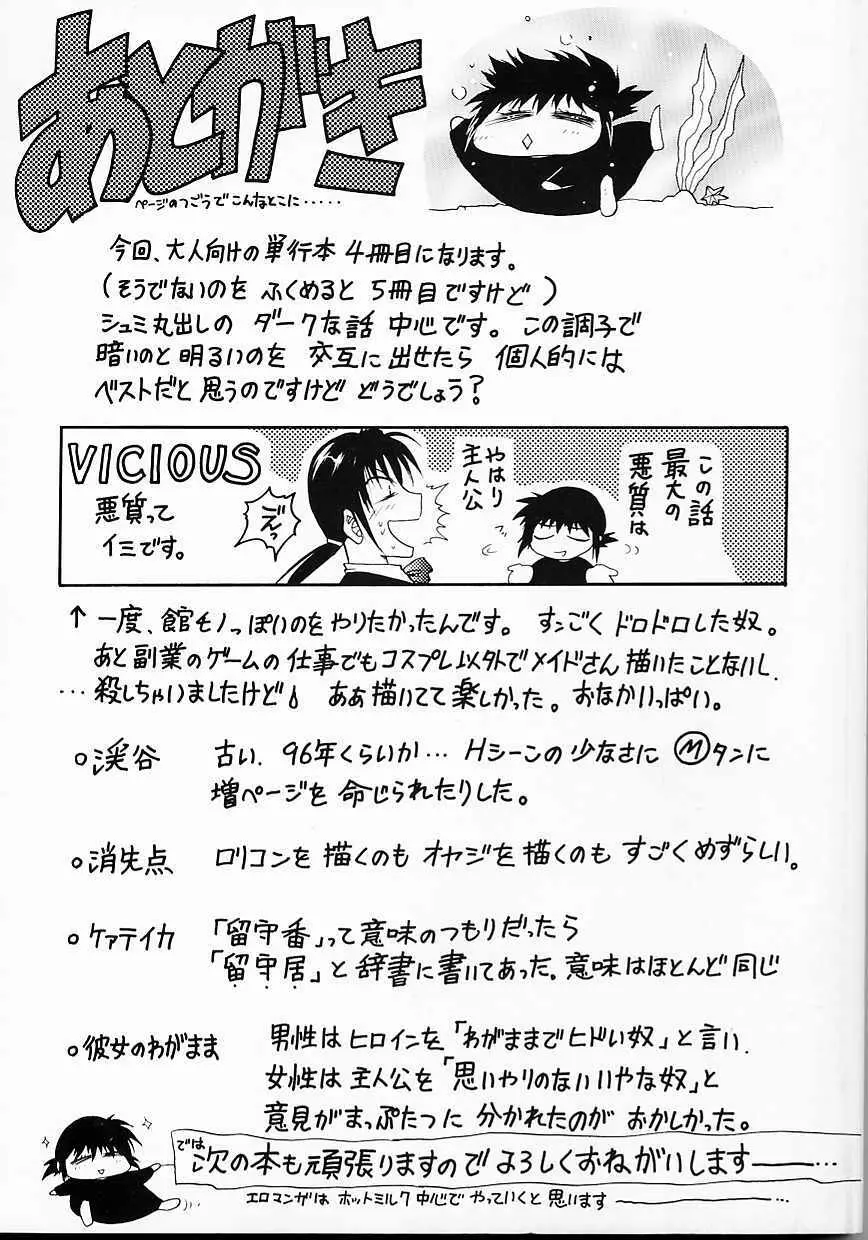 あとがき
ページのつごうで こんなとこに・・・・・
今回、大人向けの単行本 4冊目になります。
(そうでないのを ふくめると 5冊目ですけど)
シュミ丸出しの ダークな話 中心です。この調子で
暗いのと 明るいのを 交互に出せたら 個人的には
ベストだと 思うのですけど どうでしょう?
VICIOUS
悪質って
イミです。
この話
最大の
悪質は
やはり
主人公
ぞえっ
↑ 一度、館モノっぽいのをやりたかったんです。すンごく ドロドロした奴。
あと副業のゲームの仕事でもコスプレ以外でメイドさん描いたことないし.
…殺しちゃいましたけど ああ描いてて楽しかった。おなかいっぱい。
○渓谷 古い. 96年くらいか… Hシーンの少なさに Ⓜタンに
増ページを 命じられたりした。
○消失点 ロリコンを 描くのも オヤジを 描くのも すごくめずらしい。
○ケァテイカ 「留守番」って意味のつもりだったら
「留守居」と 辞書に書いてあった。意味はほとんど同じ
○彼女のわがまま 男性は ヒロインを「わがままでヒドい奴」と言い.
女性は 主人公を「思いやりのないいやな奴」と
意見がまっぷたつに 分かれたのが おかしかった。
では 次の本も頑張りますので よろしくおねがいします―――…
エロマンガは ホットミルク中心で やっていくと 思います―――…